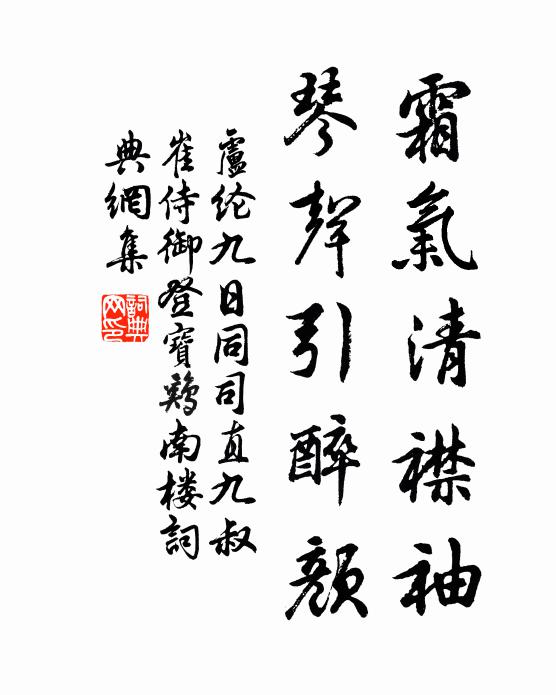 霜氣清襟袖
琴聲引醉顏
盧纶九日同司直九叔
崔侍御登寶鷄南楼詞
典網集
詞典
网印